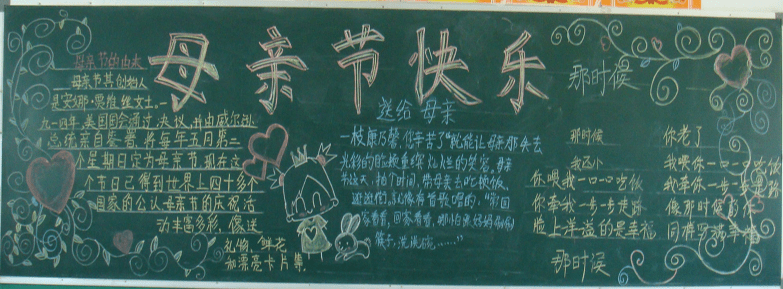 母亲节快乐
母亲节的由来
母亲节其创始人
是安娜·
一九一四年美国国会通过决议,并由威尔逊
总统亲自签署,将每年五月第二
个星期日定为母亲节,现在这
个节日已得到世界上四十多个
国家的公认,母亲节的庆祝活
动丰富多彩,像送
礼物,鲜花
和漂亮卡片等.
送给母亲
一枝康乃馨,一句"辛苦了"就能让母亲那失去
光彩的脸
节这天,抽个时间,带母亲去吃顿饭,
逛逛街,
家看看,回家看看,哪怕
筷子,洗洗碗……"
那时候
那时候
我还小
你喂我一口一口吃饭
你牵我一步一步走路
脸上洋溢的是幸福
那时候
你老了
我喂你一口一口吃
我牵你一步一步走
像那时候
同样写满幸福